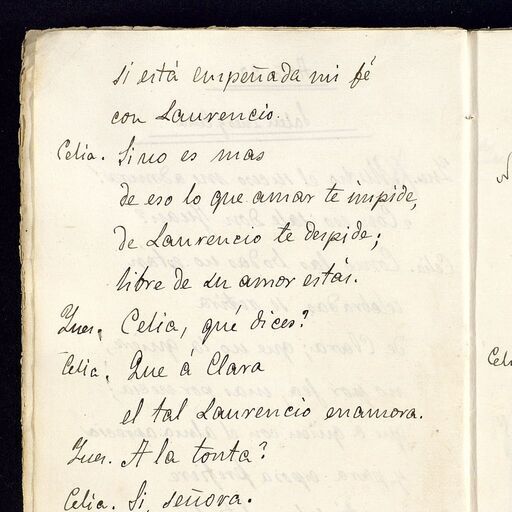 si está empeñada mi fé
con Laurencio.
Celia. Si no es mas
de eso lo que amar te impide,
de Laurencio te despide;
libre de su amor estás.
Ynes. Celia, qué dices?
Celia. Que á Clara
el tal Laurencio enamora.
Ynes. A la tonta?
Celia. Si, señora.